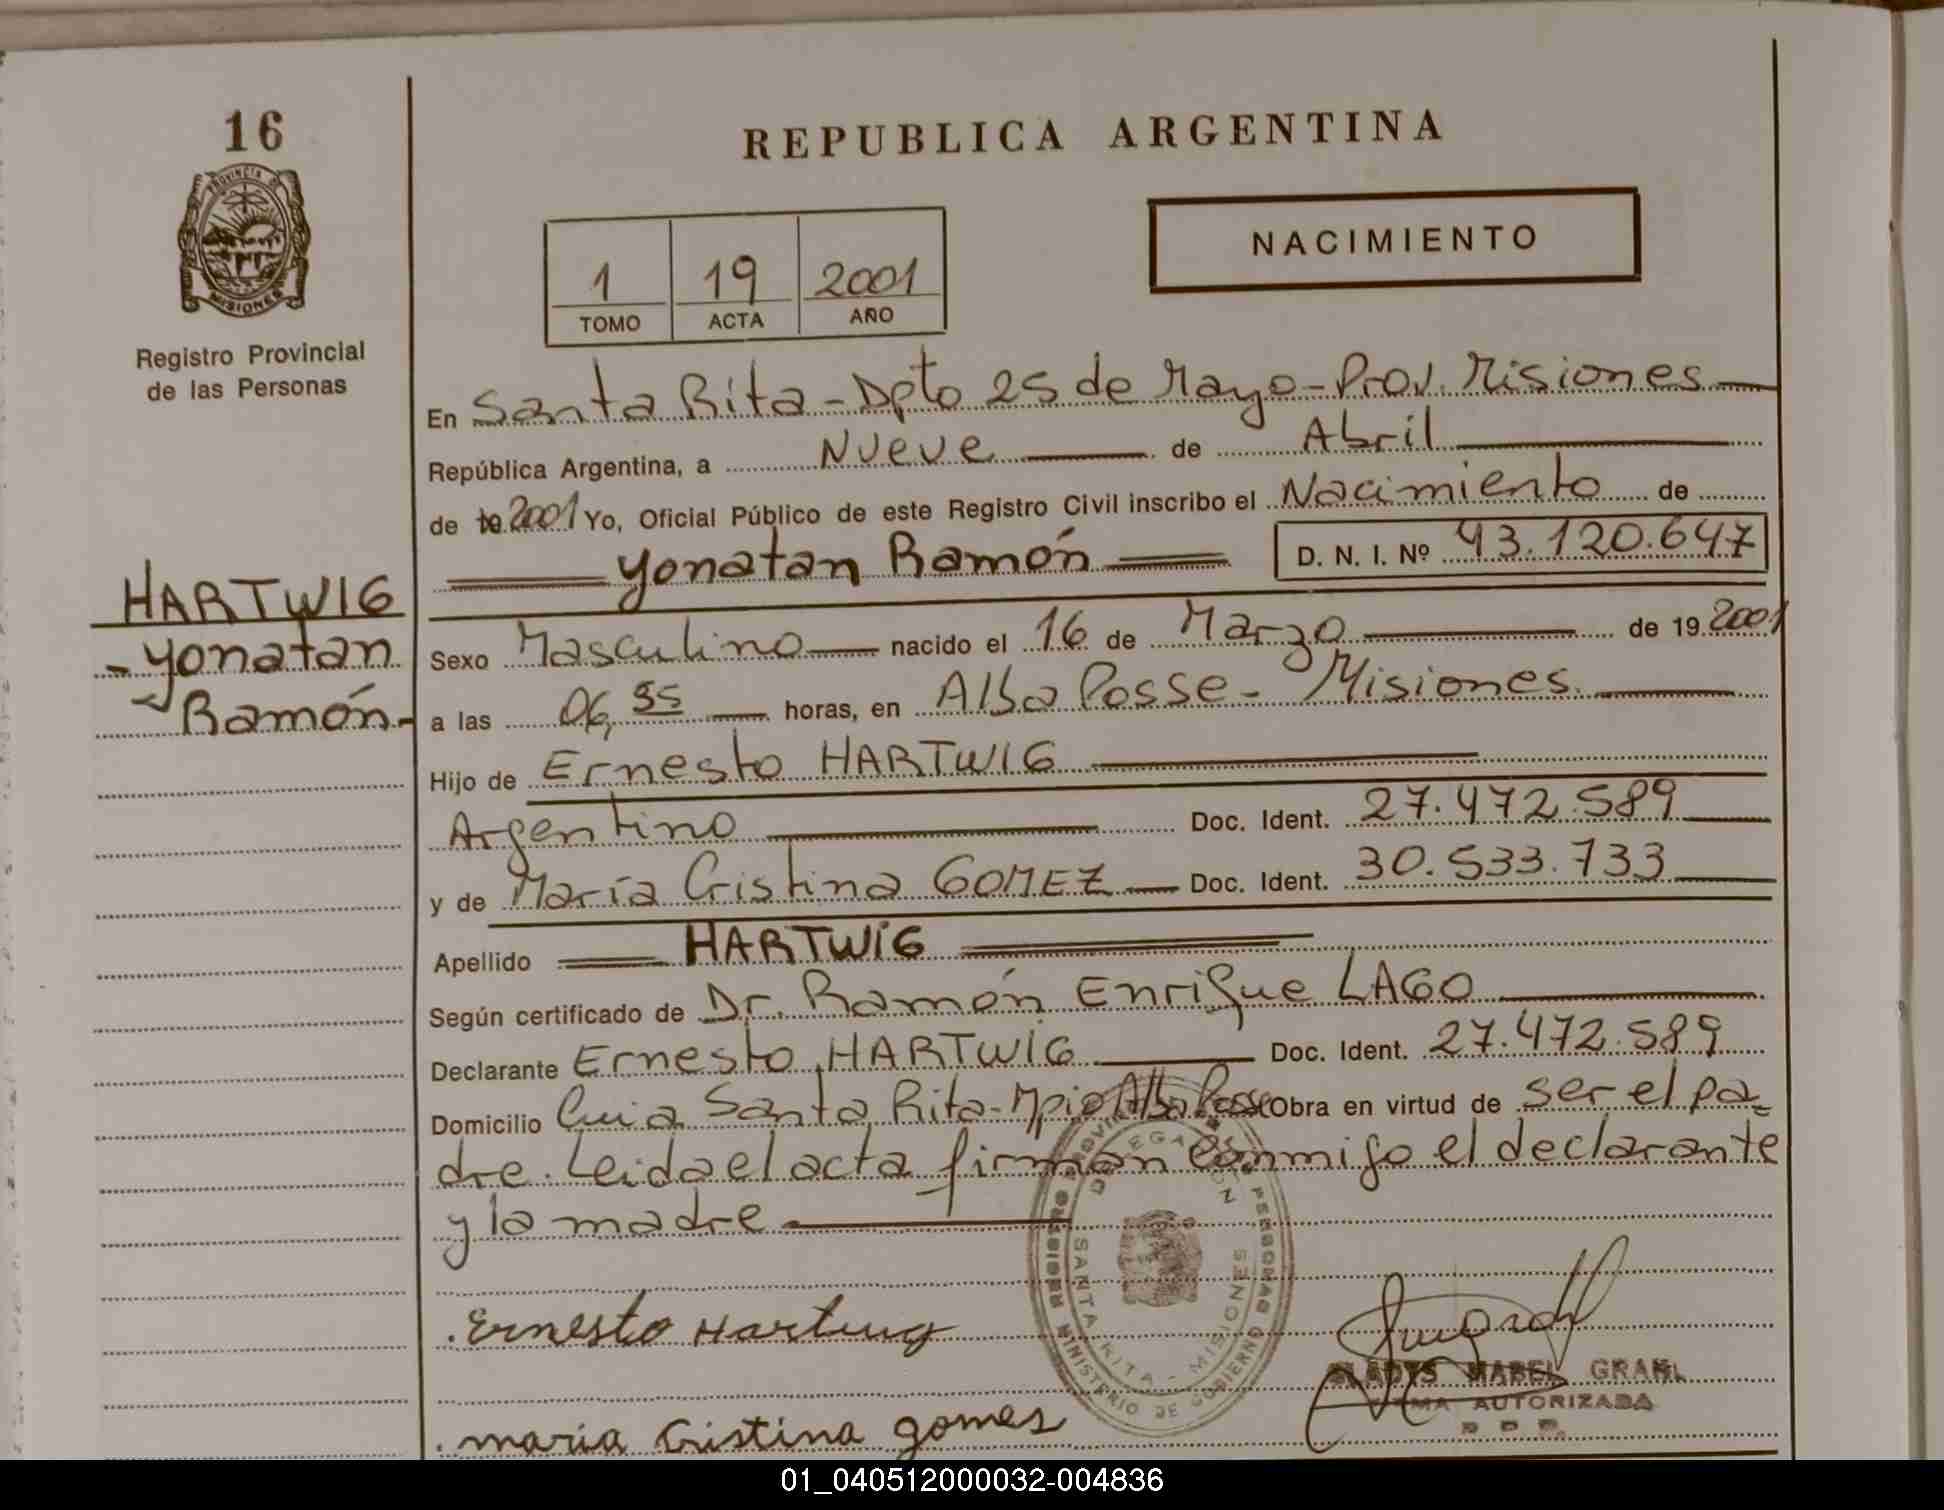 16
REPUBLICA ARGENTINA
PROVINCIA DE
MISIONES
Registro Provincial
de las Personas
1 19 2001
TOMO ACTA AÑO
NACIMIENTO
En Santa Rita - Dpto 25 de Mayo - Prov. Misiones
República Argentina, a Nueve de Abril
de 2001 Yo, Oficial Público de este Registro Civil inscribo el Nacimiento de
Yonatan Ramón D. N. I. Nº 43.120.647
HARTWIG
- Yonatan
Ramón -
Sexo Masculino nacido el 16 de Marzo de 19 2001
a las 06, horas, en Alba Posse - Misiones
Hijo de Ernesto HARTWIG
Argentino Doc. Ident. 27.472.589
y de María Cristina GOMEZ Doc. Ident. 30.533.733
Apellido HARTWIG
Según certificado de Dr. Ramón Enrique LAGO
Declarante Ernesto HARTWIG Doc. Ident. 27.472.589
Domicilio Santa Rita - Mpio Alba Posse Obra en virtud de ser el pa-
dre. Leida el acta firman conmigo el declarante
y la madre
DELEGACION
SANTA RITA - MISIONES
MINISTERIO DE GOBIERNO
Ernesto Hartwig
GLADYS MABEL GRAHL
FIRMA AUTORIZADA
maria Cristina gomes
01_040512000032-004836